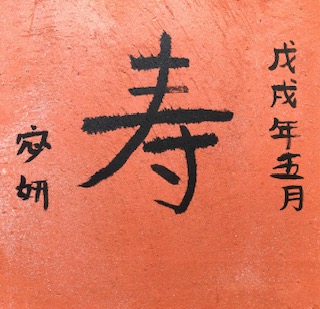 戊戌年五月
寿
宓妍